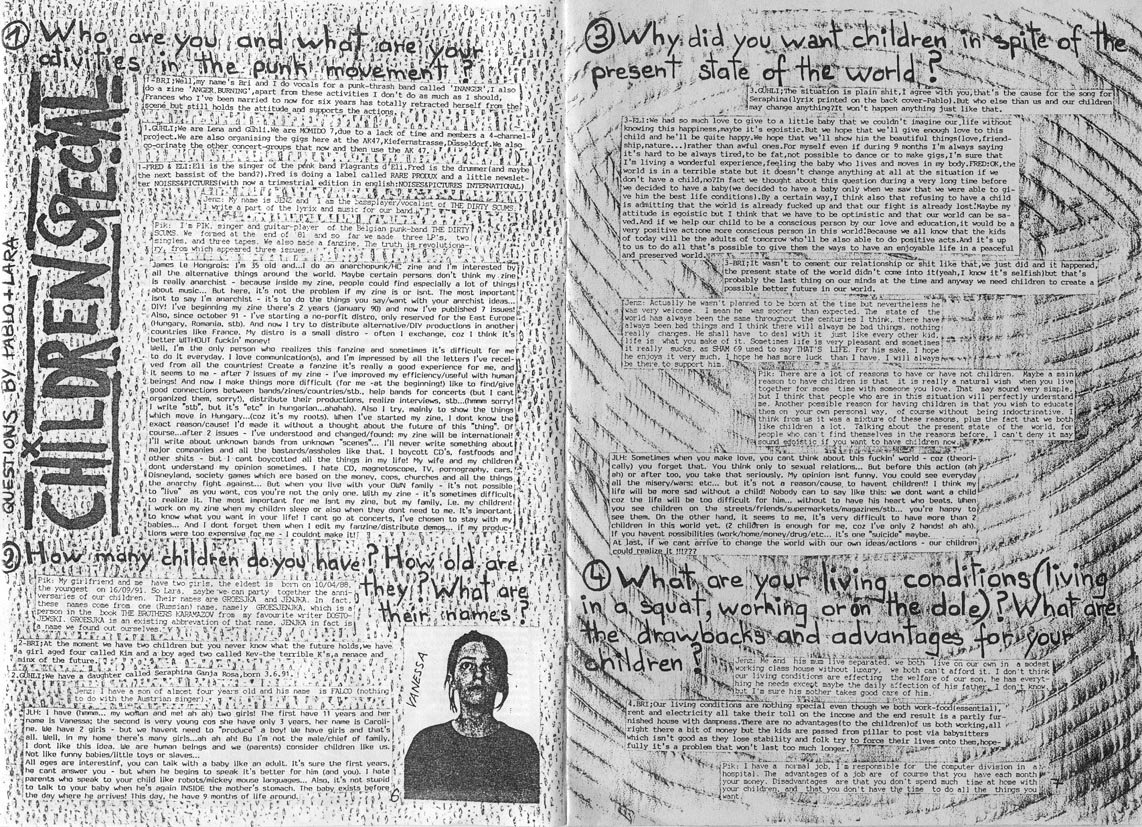 QUESTIONS BY PABLO + LARA.
CHILDREN SPECIAL
① Who are you and what are your
ativities in the punk movement?
1-BRI;Well,my name's Bri and I do vocals for a punk-thrash band called 'INANGER',I also
do a zine 'ANGER BURNING',apart from these activities I don't do as much as I should,
Frances who I've been married to now for six years has totally retracted herself from the
scene but still holds the attitude and supports the actions.
1.GÜHLI;We are Lena and Gühli,we are MOMIDO ?,due to a lack of time and members a 4-channel-
project.We are also organising the gigs here at the AK47,Kiefernstrasse,Düsseldorf.We also
co-orinate the other concert-groups that now and then use the AK 47.
1-FRED & ELI:Eli is the singer of the punk band Flagrants d'Eli.Fred is the drummer(and maybe
the next bassist of the band?).Fred is doing a label called RARE PRODUX and a little newslet-
ter NOISES&PICTURES(with now a trimestrial edition in english:NOISES&PICTURES INTERNATIONAL)
Jenz: My name is JENZ and I am the bassplayer/vocalist of THE DIRTY SCUMS.
I write a part of the lyrix and music for our band.
Pik: I'm PIK, singer and guitar-player of the Belgian punk-band THE DIRTY
SCUMS. We formed at the end of '81 and so far we made three LP's, two
singles, and three tapes. We also made a fanzine. The truth is revolutiona-
ry, from which appeared three issues.
James Le Hongrois: I'm 35 old and...I do an anarchopunk/HC zine and I'm interested by
all the alternative things around the world. Maybe certain persons don't think my zine
is really anarchist - because inside my zine, people could find especially a lot of things
about music... But here, it's not the problem if my zine is or isnt. The most important
isnt to say I'm anarchist - it's to do the things you say/want with your anrchist ideas...
DIY! I've beginning my zine there's 2 years (january 90) and now I've published 7 issues!
Also, since october 91 - I've starting a no-porfit distro, only reserved for the East Europe
(Hungary, Romania, stb). And now I try to distribute alternative/DIY productions in another
countries like France. My distro is a small distro - often I exchange, coz I think it's
better WITHOUT fuckin' money!
Well, I'm the only person who realizes this fanzine and sometimes it's difficult for me
to do it everyday. I love communication(s), and I'm impressed by all the letters I've recei-
ved from all the countries! Create a fanzine it's really a good experience for me, and
it seems to me - after 7 issues of my zine - I've improved my efficiency/useful with human
beings! And now I make things more difficult (for me -at the beginning!) like to find/give
good connections between bands/zines/countries/stb.. help bands for concerts (but I cant
organized them, sorry!), distribute their productions, realize interviews, stb...(hmmm sorry!
I write "stb", but it's "etc" in hungarian...ahahah). Also I try, mainly to show the things
which move in Hungary...(coz it's my roots). When I've started my zine, I dont know the
exact reason/cause! I'd made it without a thought about the future of this "thing". Of
course...after 2 issues - I've understood and changed/found; my zine will be international!
I'll write about unknown bands from unknown "scenes"... I'll never write something about
major companies and all the bastards/assholes like that. I boycott CD's, fastfoods and
other shits - but I cant boycotted all the things in my life! My wife and my children
dont understand my opinion sometimes. I hate CD, magnetoscope, TV, pornography, cars,
Disneyland, society games which are based on the money, cops, churches and all the things
the anarchy fight against... But when you live with your OWN family - it's not possible
to "live" as you want, cos you're not the only one. With my zine - it's sometimes difficult
to realize it. The most important for me isnt my zine, but my family, i.e. my children!
I work on my zine when my children sleep or also when they dont need to me. It's important
to know what you want in your life! I cant go at concerts, I've chosen to stay with my
babies... And I dont forget them when I edit my fanzine/distribute demos... if my produc-
tions were too expensive for me - I couldnt make it!
② How many children do you have? How old are
they? What are
their names?
Pik: My girlfriend and me have two girls, the eldest is born on 10/04/88,
the youngest on 16/09/91. So Lara, maybe we can party together the anni-
versaries of our children. Their names are GROESJKA and JENJKA. In fact,
these names come from one (Russian) name, namely GROESJENJKA, which is a
person in the book THE BROTHERS KARAMAZOV from my favourite writer DOSTO-
JEWSKI. GROESJKA is an existing abbrevation of that name, JENJKA in fact is
a name we found out ourselves.
2-BRI;At the moment we have two children but you never know what the future holds,we have
a girl aged four called Kim and a boy aged two called Kev-the terrible K's,a menace and
minx of the future.
2.GÜHLI;We have a daughter called Seraphina Ganja Rosa,born 3.6.91.
Jenz: I have a son of almost four years old and his name is FALCO (nothing
to do with the Austrian singer).
JLH: I have (hmmm... my woman and me! ah ah) two girls! The first have 11 years and her
name is Vanessa; the second is very young cos she have only 3 years, her name is Caroli-
ne. We have 2 girls - but we havent need to "produce" a boy! We have girls and that's
all. Well, in my home there's many girls...ah ah ah! Bu I'm not the male/chief of family.
I dont like this idea. We are human beings and we (parents) consider children like us.
Not like funny babies/little toys or slaves...
All ages are interesting, you can talk with a baby like an adult. It's sure the first years,
he cant answer you - but when he begins to speak it's better for him (and you). I hate
parents who speak to your child like robots/mickey mouse languages... Also, it's not stupid
to talk to your baby when he's again INSIDE the mother's stomach. The baby exists before
the day where he arrives! This day, he have 9 months of life around.
VANESA
6
③ Why did you want children in spite of the
present state of the world?
3.GÜHLI;The situation is plain shit,I agree with you,that's the cause for the song for
Seraphina(lyrix printed on the back cover-Pablo).But who else than us and our children
may change anything?It won't happen anything just like that.
3-ELI:We had so much love to give to a little baby that we couldn't imagine our life without
knowing this happiness,maybe it's egoistic.But we hope that we'll give enough love to this
child and he'll be quite happy.We hope that we'll show him the beautiful things(love,friend-
ship,nature...)rather than awful ones.For myself even if during 9 months I'm always saying
it's hard to be always tired,to be fat,not possible to dance or to make gigs,I'm sure that
I'm living a wonderful experience,feeling the baby who lives and moves in my body.FRED:OK,the
world is in a terrible state but it doesn't change anything at all at the situation if we
don't have a child,no?In fact we thought about this question during a very long time before
we decided to have a baby(we decided to have a baby only when we saw that we were able to gi-
ve him the best life conditions).By a certain way,I think also that refusing to have a child
is admitting that the world is already fucked up and that our fight is already lost.Maybe my
attitude is egoistic but I think that we have to be optimistic and that our world can be sa-
ved.And if we help our child to be a conscious person by our love and education,it would be
very positive act:one more conscious person in this world!Because we all know that the kids
of today will be the adults of tomorrow who'll be able also to do positive acts.And it's up
to us to do all that's possible to give them the ways to have an enjoyable life in a peaceful
and preserved world.
3-BRI;It wasn't to cement our relationship or shit like that,we just did and it happened,
the present state of the world didn't come into it(yeah,I know it's selfish)but that's
probably the last thing on our minds at the time and anyway we need children to create a
possible better future in our world.
Jenz: Actually he wasn't planned to be born at the time but nevertheless he
was very welcome. I mean he was sooner than expected. The state of the
world has always been the same throughout the centuries I think, there have
always been bad things and I think there will always be bad things, nothing
really changes. He shall have to deal with it just like every other kid,
life is what you make of it. Sometimes life is very pleasant and sometimes
it really sucks, as SHAM 69 used to say THAT'S LIFE. For his sake, I hope
he enjoys it very much, I hope he has more luck than I have. I will always
be there to support him.
Pik: There are a lot of reasons to have or have not children. Maybe a main
reason to have children is that it is really a natural wish when you live
together for some time with someone you love. That may sound very simple,
but I think that people who are in this situation will perfectly understand
me. Another possible reason for having children is that you wish to educate
them on your own personal way, of course without being indoctrinative. I
think from us it was a mixture of these reasons, plus the fact that we both
like children a lot. Talking about the present state of the world, for
people who can't find themselves in the reasons before, I can't deny it may
sound egoistic if you want to have children now.
JLH: Sometimes when you make love, you cant think about this fuckin' world - coz (theori-
cally) you forget that. You think only to sexual relations... But before this action (ah
ah) or after too, you take that seriously. My opinion isnt funny. You could see everyday
all the misery/wars: etc... but it's not a reason/cause to havent children!! I think my
life will be more sad without a child! Nobody can to say like this: we dont want a child
coz the life will be too difficult for him... without to have his heart who beats. When
you see children on the streets/friends/supermarkets/magazines/stb... you're happy to
see them. On the other hand, it seems to me, it's very difficult to have more than 2
children in this world yet. (2 children is enough for me, coz I've only 2 hands! ah ah).
If you havent possibilities (work/home/money/drug/etc... it's one "suicide" maybe.
At last, if we cant arrive to change the world with our own ideas/actions - our children
could realize it !!!???
④ What are your living conditions(living
in a squat, working or on the dole)? What are
the drawbacks and advantages for your
children?
Jenz: Me and his mum live separated, we both live on our own in a modest
working class house without luxury, we both can't afford it. I don't think
our living conditions are effecting the welfare of our son, he has everyt-
hing he needs except maybe the daily affection of his father. I don't know,
but I'm sure his mother takes good care of him.
4.BRI;Our living conditions are nothing special even though we both work-food(essential),
rent and electricity all take their toll on the income and the end result is a partly fur-
nished house with dampness.There are no advantages(to the children)of us both working,all
right there a bit of money but the kids are passed from pillar to post via babysitters
which isn't good as they lose stability and folk try to force their lives onto them,hope-
fully it's a problem that won't last too much longer.
Pik: I have a normal job, I'm responsible for the computer division in a
hospital. The advantages of a job are of course that you have each month
your money. Disadvantages are that you don't spend much time at home with
your children, and that you don't have the time to do all the things you
want.
7